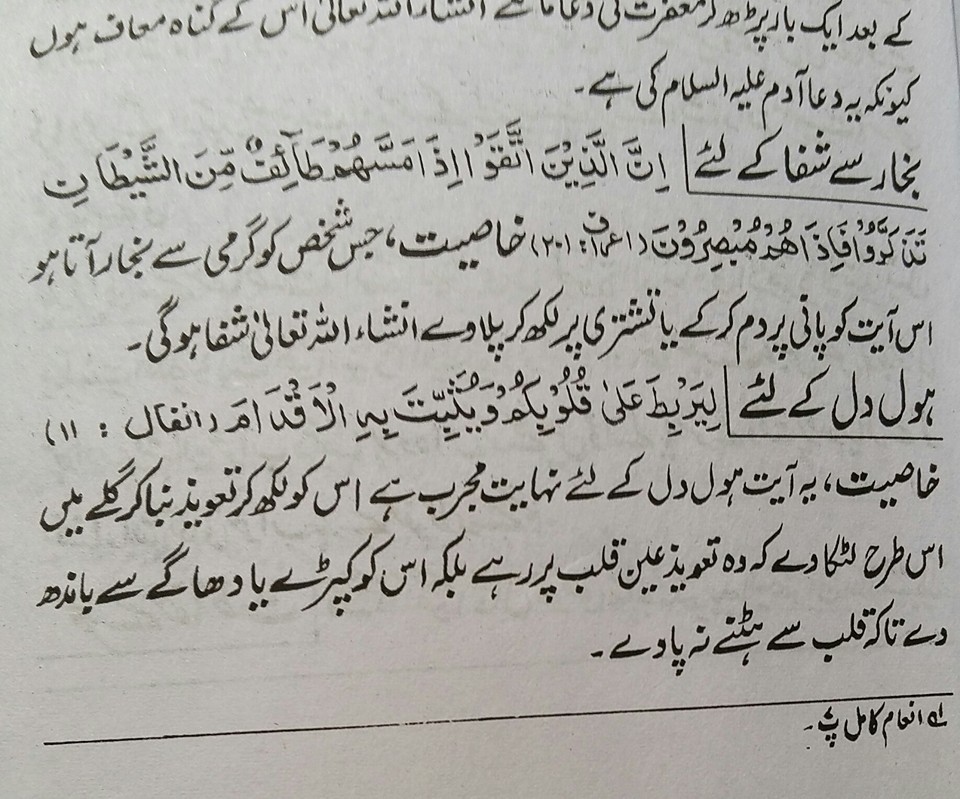 کے بعد ایک بار پڑھ کر مغفرت کی دعا مانگے انشاء اللہ تعالیٰ اس کے گناہ معاف ہوں
کیونکہ یہ دعا آدم علیہ السلام کی ہے۔
بخار سے شفا کے لئے اِنَّ الَّذِيْنَ اتَّقَوْا اِذَا مَسَّهُمْ طَآئِفٌ مِّنَ الشَّيْطَانِ
تَذَكَّرُوْا فَاِذَا هُمْ مُّبْصِرُوْنَ (اعراف: ۲۰۱) خاصیت، جس شخص کو گرمی سے بخار آتا ہو
اس آیت کو پانی پر دم کرکے یا تشتری پر لکھ کر پلاوے انشاء اللہ تعالیٰ شفا ہوگی۔
ہول دل کے لئے لِيَرْبِطَ عَلىٰ قُلُوْبِكُمْ وَيُثَبِّتَ بِهِ الْاَقْدَامَ (انفال : ۱۱)
خاصیت، یہ آیت ہول دل کے لئے نہایت مجرب ہے اس کو لکھ کر تعویذ بنا کر گلے میں
اس طرح لٹکا دے کہ وہ تعویذ عین قلب پر رہے بلکہ اس کو کپڑے یا دھاگے سے باندھ
دے تاکہ قلب سے ہٹنے نہ پاوے۔
انعام کامل